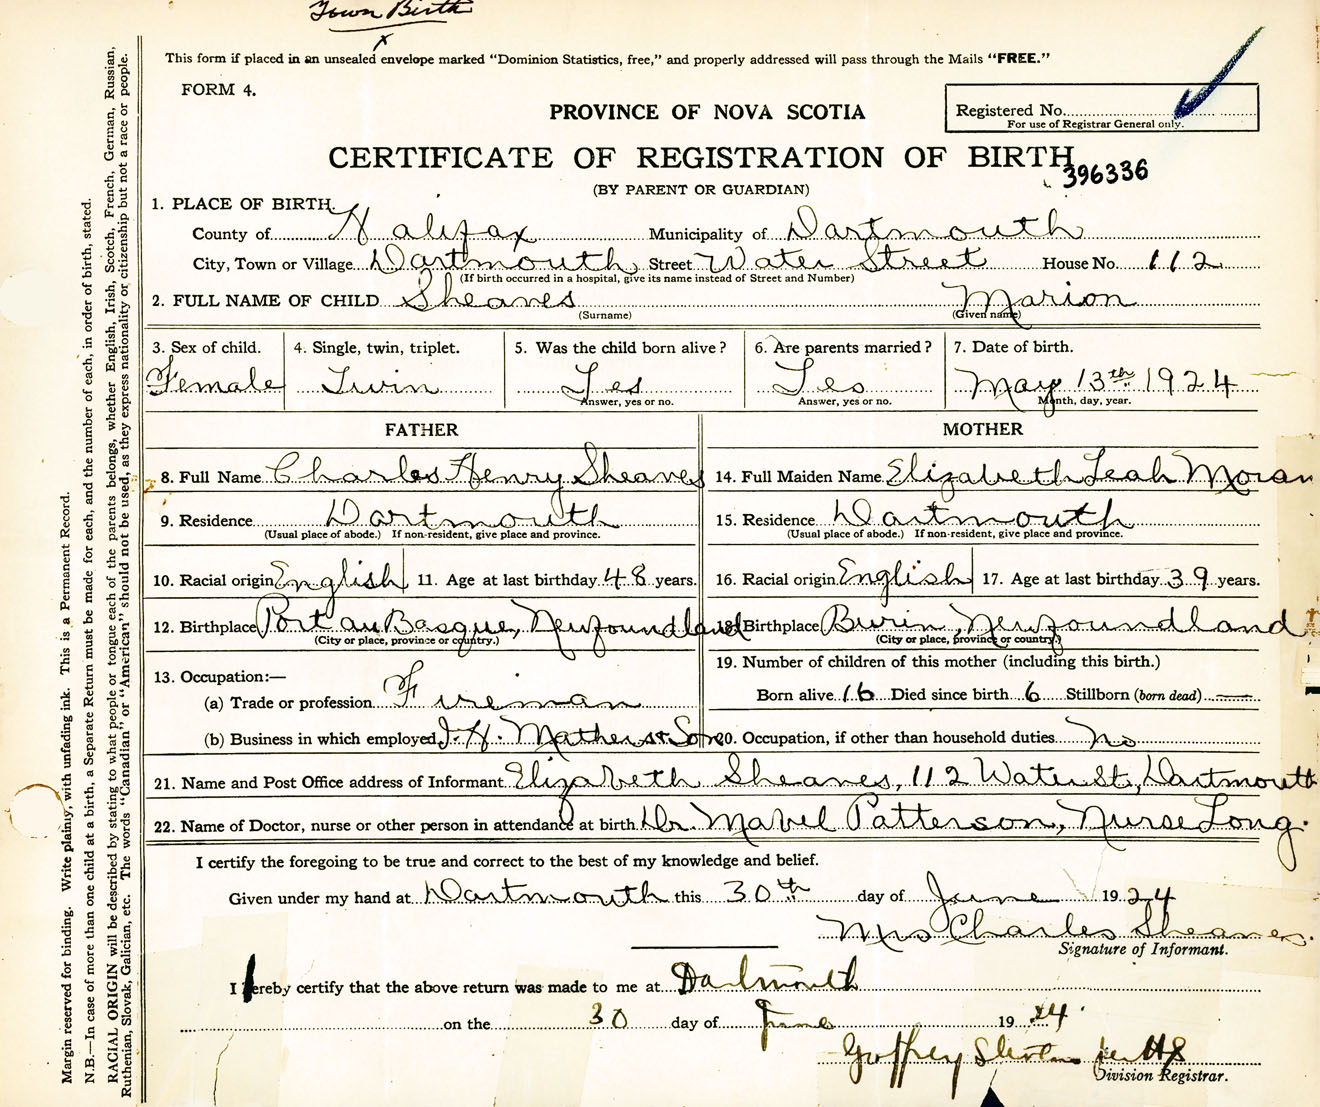 Town Birth
x
This form if placed in an unsealed envelope marked "Dominion Statistics, free," and properly addressed will pass through the Mails "FREE."
FORM 4.
PROVINCE OF NOVA SCOTIA
Registered No.
For use of Registrar General only.
CERTIFICATE OF REGISTRATION OF BIRTH
396336
(BY PARENT OR GUARDIAN)
1. PLACE OF BIRTH.
County of Halifax Municipality of Dartmouth
City, Town or Village Dartmouth Street Water Street House No. 112
(If birth occurred in a hospital, give its name instead of Street and Number)
2. FULL NAME OF CHILD Sheaves Marion
(Surname) (Given name)
3. Sex of child. 4. Single, twin, triplet. 5. Was the child born alive? 6. Are parents married? 7. Date of birth.
Female Twin Yes Yes May 13th 1924
Answer, yes or no. Answer, yes or no. Month, day, year.
FATHER MOTHER
8. Full Name Charles Henry Sheaves 14. Full Maiden Name Elizabeth Leah Moran
9. Residence Dartmouth 15. Residence Dartmouth
(Usual place of abode.) If non-resident, give place and province. (Usual place of abode.) If non-resident, give place and province.
10. Racial origin English 11. Age at last birthday 48 years. 16. Racial origin English 17. Age at last birthday 39 years.
12. Birthplace Port au Basque, Newfoundland 18. Birthplace Burin, Newfoundland
(City or place, province or country.) (City or place, province or country)
13. Occupation:— 19. Number of children of this mother (including this birth.)
(a) Trade or profession Fireman Born alive 16 Died since birth 6 Stillborn (born dead) —
(b) Business in which employed I. H. Mather & Sons 20. Occupation, if other than household duties No
21. Name and Post Office address of Informant Elizabeth Sheaves, 112 Water St, Dartmouth
22. Name of Doctor, nurse or other person in attendance at birth Dr. Mabel Patterson, Nurse Long.
I certify the foregoing to be true and correct to the best of my knowledge and belief.
Given under my hand at Dartmouth this 30th day of June 1924
Mrs Charles Sheaves.
Signature of Informant.
I hereby certify that the above return was made to me at Dartmouth
on the 30 day of June 1924.
Goffrey
Division Registrar.
Margin reserved for binding. Write plainly, with unfading ink. This is a Permanent Record.
N.B.—In case of more than one child at a birth, a Separate Return must be made for each, and the number of each, in order of birth, stated.
RACIAL ORIGIN will be described by stating to what people or tongue each of the parents belongs, whether English, Irish, Scotch, French, German, Russian,
Ruthenian, Slovak, Galician, etc. The words "Canadian" or "American" should not be used, as they express nationality or citizenship but not a race or people.